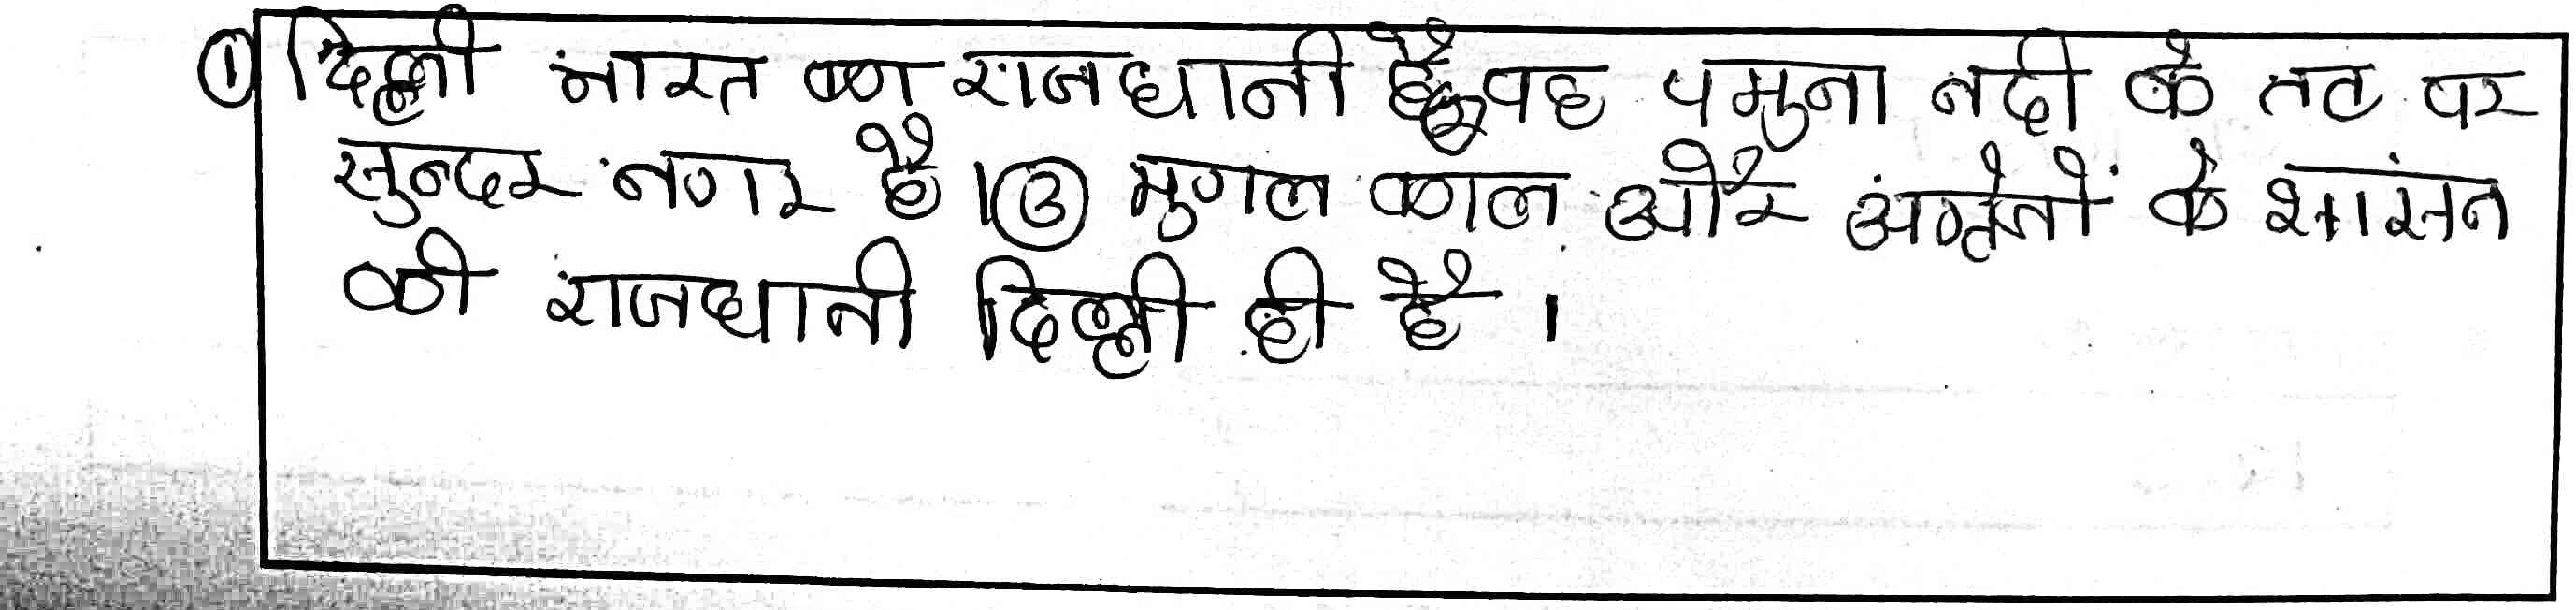 ① दिल्ली भारत का राजधानी है ② यह यमुना नदी के तट पर
सुन्दर नगर है । ③ मुगल काल और अंग्रेजों के शासन
की राजधानी दिल्ली ही है ।